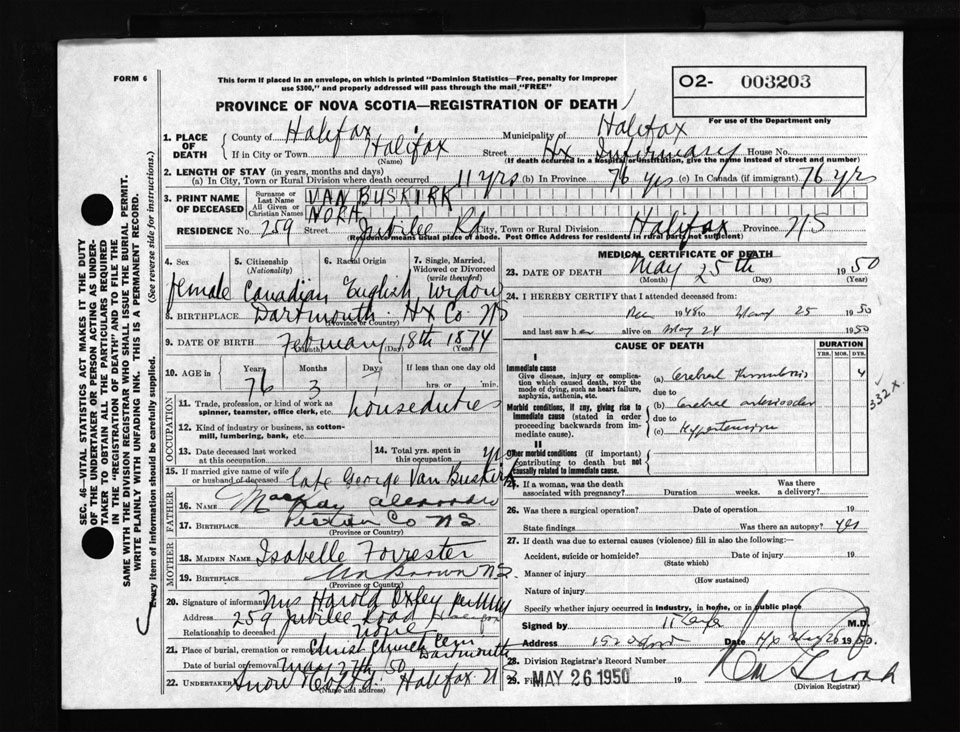 FORM 6
This form if placed in an envelope, on which is printed "Dominion Statistics—Free, penalty for improper
use $300," and properly addressed will pass through the mail "FREE"
O2- 003203
PROVINCE OF NOVA SCOTIA—REGISTRATION OF DEATH
For use of the Department only
1. PLACE OF DEATH
County of Halifax Municipality of Halifax
If in City or Town Halifax Street Hx Infirmary House No.
(Name) (If death occurred in a hospital or institution, give the name instead of street and number)
2. LENGTH OF STAY (in years, months and days)
(a) In City, Town or Rural Division where death occurred 11 yrs (b) in Province 76 yrs (c) in Canada (if immigrant) 76 yrs
3. PRINT NAME OF DECEASED
Surname or Last Name VAN BUSKIRK
All Given or Christian Names NORA
RESIDENCE No. 259 Street Jubilee Rd City, Town or Rural Division Halifax Province NS
(Residence means usual place of abode. Post Office Address for residents in rural parts not sufficient)
4. Sex
5. Citizenship (Nationality)
6. Racial Origin
7. Single, Married, Widowed or Divorced (write the word)
female Canadian English Widow
8. BIRTHPLACE Dartmouth Hx Co. NS
(Province or Country)
9. DATE OF BIRTH February 18th 1874
(Month) (Day) (Year)
10. AGE in Years Months Days If less than one day old
76 3 7 hrs. or min.
OCCUPATION
11. Trade, profession, or kind of work as
spinner, teamster, office clerk, etc. houseduties
12. Kind of industry or business, as cotton-
mill, lumbering, bank, etc.
13. Date deceased last worked
at this occupation
14. Total yrs. spent in
this occupation
15. If married give name of wife
or husband of deceased Late George Van Buskirk
FATHER
16. NAME MacKay Alexander
17. BIRTHPLACE Pictou Co NS.
(Province or Country)
MOTHER
18. MAIDEN NAME Isabelle Forrester
19. BIRTHPLACE Unknown NS.
(Province or Country)
20. Signature of informant Mrs Harold Oxley
Address 259 Jubilee Road Halifax
Relationship to deceased None
21. Place of burial, cremation or removal Christ Church Cem Dartmouth
Date of burial or removal May 27th 50
22. Undertaker Snow & Co Ltd. Halifax NS
(Name and address)
MEDICAL CERTIFICATE OF DEATH
23. DATE OF DEATH May 25th 1950
(Month) (Day) (Year)
24. I HEREBY CERTIFY that I attended deceased from:
1948 to May 25 1950
and last saw her alive on May 24 1950
CAUSE OF DEATH
DURATION
YRS. MOS. DYS.
I
Immediate cause
Give disease, injury or compli-
cation which caused death, NOT the
mode of dying, such as heart failure,
asphyxia, asthenia, etc.
(a) Cerebral Thrombosis 4
due to
Morbid conditions, if any, giving rise to
immediate cause (stated in order
proceeding backwards from im-
mediate cause).
(b) Cerebral
due to
(c) Hypertension
332X
II
Other morbid conditions (if important)
contributing to death but not
causally related to immediate cause.
25. If a woman, was the death
associated with pregnancy? Duration weeks. Was there
a delivery?
26. Was there a surgical operation? Date of operation 19
State findings Was there an autopsy? Yes
27. If death was due to external causes (violence) fill in also the following:—
Accident, suicide or homicide? Date of injury 19
(State which)
Manner of injury
(How sustained)
Nature of injury
Specify whether injury occurred in industry, in home, or in public place
Signed by M.D.
Address Date Hx May 26 1950.
28. Division Registrar's Record Number
29. Filed MAY 26 1950 19
(Division Registrar)
SEC. 46—VITAL STATISTICS ACT MAKES IT THE DUTY
OF THE UNDERTAKER OR PERSON ACTING AS UNDER-
TAKER TO OBTAIN ALL THE PARTICULARS REQUIRED
IN THE "REGISTRATION OF DEATH" AND TO FILE THE
SAME WITH THE DIVISION REGISTRAR WHO SHALL ISSUE THE BURIAL PERMIT.
WRITE PLAINLY WITH UNFADING INK. THIS IS A PERMANENT RECORD.
Every item of information should be carefully supplied. (See reverse side for instructions.)